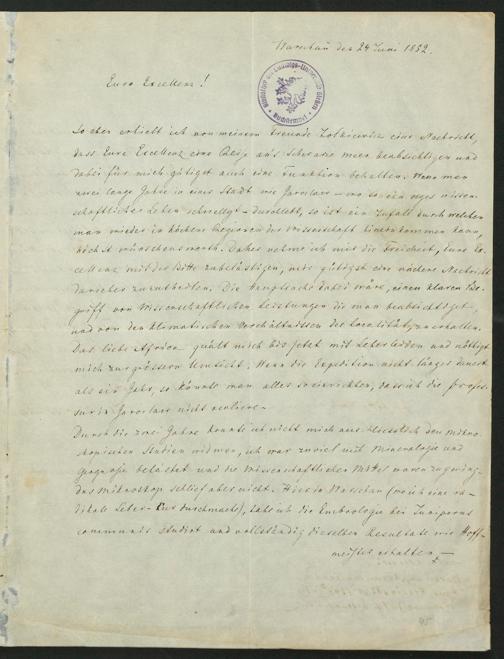 Warschau den 24 Juni 1852.
Eure Excellenz!
So eben erhielt ich von meinem Freunde eine Nachricht,
dass Eure Excellenz eine Reise an's schwarze Meer beabsichtigen und
dabei für mich gütigst auch eine Funktion behalten. Wenn man
zwei lange Jahre in einer Stadt wie Jaroslaw – wo so ein reges wissen-
schaftliches Leben – durchlebt, so ist ein Zufall durch welchen
man wieder in höhere Regionen der Wissenschaft kann,
höchst wünschenswerth. Daher nehme ich mir die Freiheit, Eure Ex-
cellenz mit der Bitte zu belästigen, mir gütigst eine nähere Nachricht
darüber zuzutheilen. Die Hauptsache dabei wäre, einen klaren Be-
griff von wissenschaftlichen Leistungen die man beabsichtiget,
und von den klimatischen Verhältnissen der Localität, zu erhalten.
Das liebe Afrika quält mich bis jetzt mit Leberleiden und nöthigt
mich zur grössern Umsicht. Wenn die Expedition nicht länger dauert
als ein Jahr, so könnte man alles so einrichten, dass ich die Profes-
sur in Jaroslaw nicht verliere.–
Durch die zwei Jahre konnte ich nicht mich ausschliesslich den mikro-
skopischen Studien widmen, ich war zuviel mit Mineralogie und
belastet und die wissenschaftlichen Mittel waren zu gering.
Das Mikroskop schlief aber nicht. Hier in Warschau (wo ich eine ra-
dikale Leber-Cur durchmache), habe ich die Embrologie bei Juniperus
communis studirt und vollständig dieselben Resultate wie Hoff-
meister erhalten.–